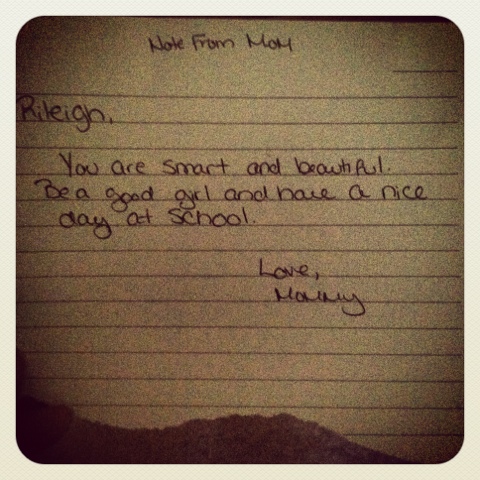 Note From Mom
Rileigh,
You are smart and beautiful.
Be a good girl and have a nice
day at school.
Love,
Mommy